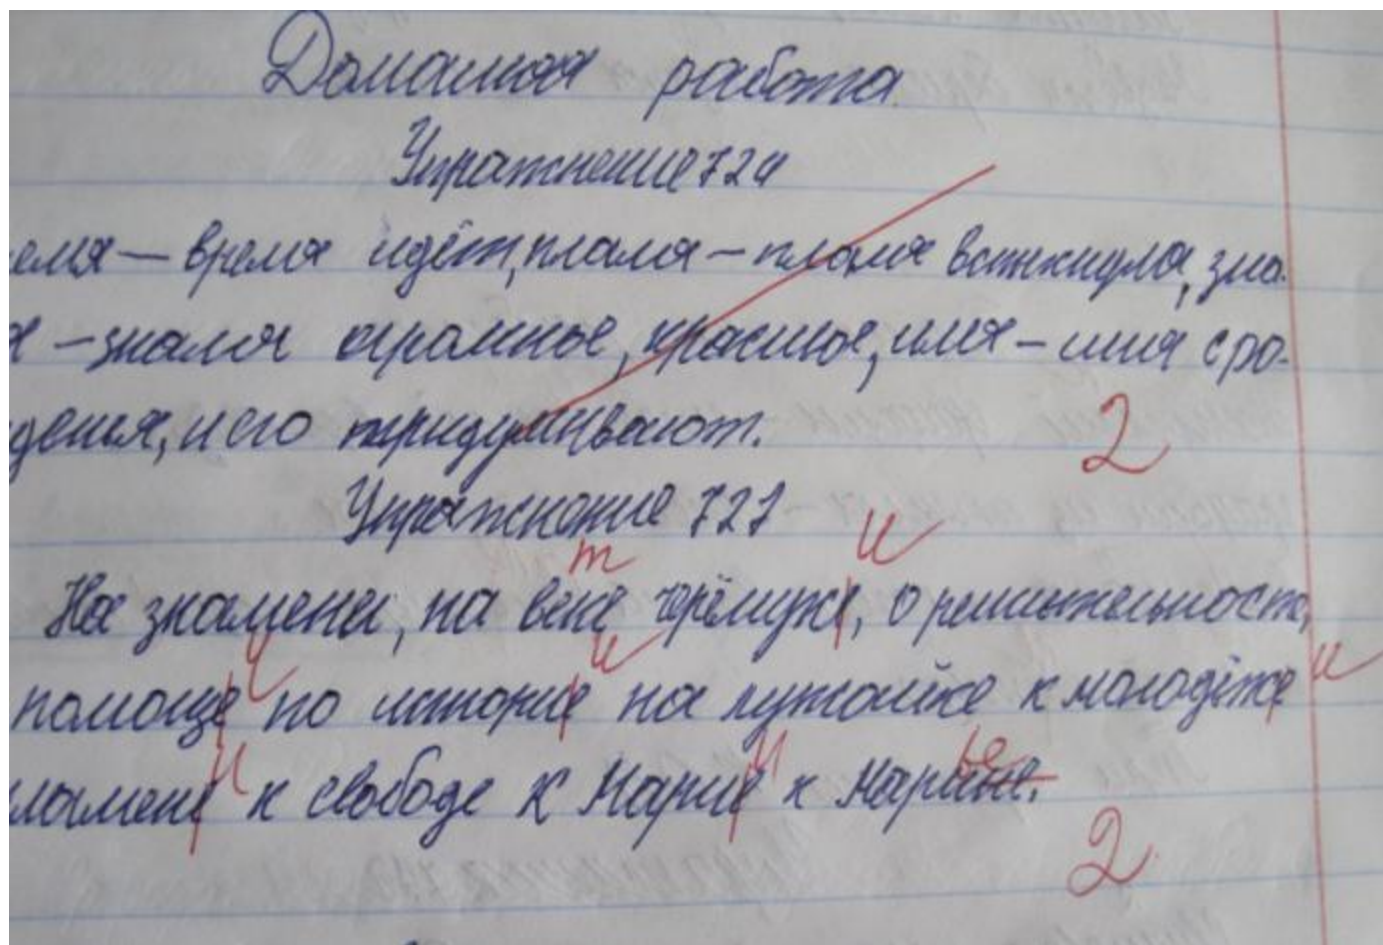 Домашняя работа
Упражнение 724
емя — время идёт, пламя – пламя вспыхнула, зна-
я – знамя огромное, красное, имя – имя с ро-
дения, и его придумывают.
Упражнение 727
т и
На знамени, на ветке черёмухе, о решительност,
и и и
помоще по историе на лужайке к молодёже
и и ье
пламене к свободе к Марие к Марине.
2
2